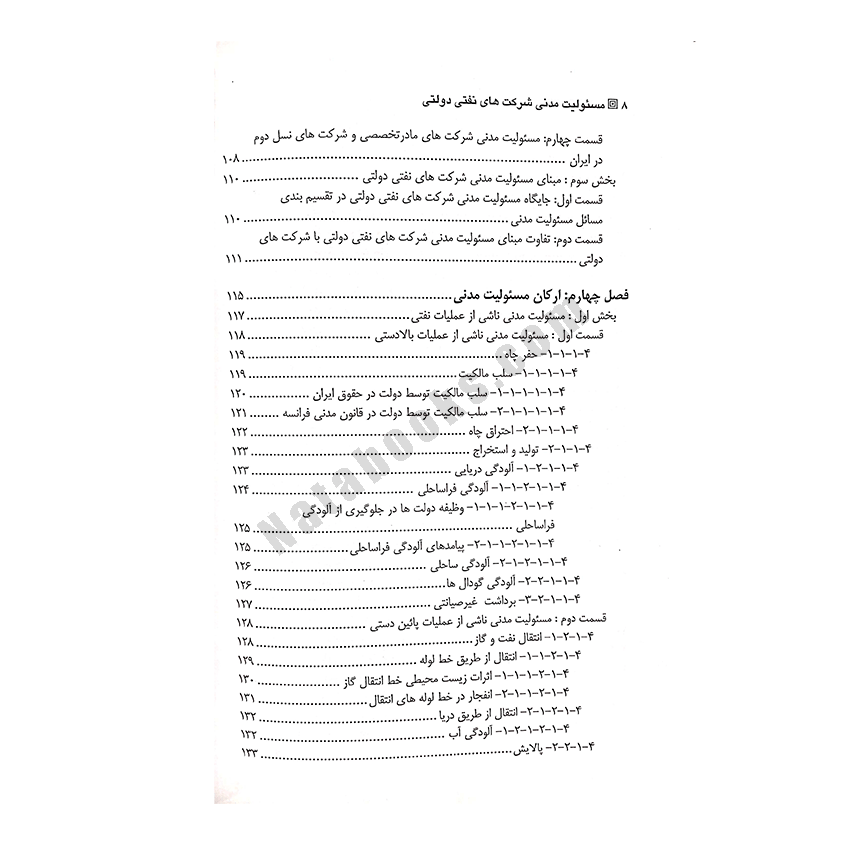 ۸ مسئولیت مدنی شرکت های نفتی دولتی
قسمت چهارم: مسئولیت مدنی شرکت های مادرتخصصی و شرکت های نسل دوم
در ایران ........ ۱۰۸
بخش سوم : مبنای مسئولیت مدنی شرکت های نفتی دولتی ........ ۱۱۰
قسمت اول: جایگاه مسئولیت مدنی شرکت های نفتی دولتی در تقسیم بندی
مسائل مسئولیت مدنی ........ ۱۱۰
قسمت دوم: تفاوت مبنای مسئولیت مدنی شرکت های نفتی دولتی با شرکت های
دولتی ........ ۱۱۱
فصل چهارم: ارکان مسئولیت مدنی ........ ۱۱۵
بخش اول : مسئولیت مدنی ناشی از عملیات نفتی ........ ۱۱۷
قسمت اول : مسئولیت مدنی ناشی از عملیات بالادستی ........ ۱۱۸
۴-۱-۱-۱- حفر چاه ........ ۱۱۹
۴-۱-۱-۱-۱- سلب مالکیت ........ ۱۱۹
۴-۱-۱-۱-۱-۱- سلب مالکیت توسط دولت در حقوق ایران ........ ۱۲۰
۴-۱-۱-۱-۱-۲- سلب مالکیت توسط دولت در قانون مدنی فرانسه ........ ۱۲۱
۴-۱-۱-۱-۲- احتراق چاه ........ ۱۲۲
۴-۱-۱-۲- تولید و استخراج ........ ۱۲۳
۴-۱-۱-۲-۱- آلودگی دریایی ........ ۱۲۳
۴-۱-۱-۲-۱-۱- آلودگی فراساحلی ........ ۱۲۴
۴-۱-۱-۲-۱-۱-۱- وظیفه دولت ها در جلوگیری از آلودگی
فراساحلی ........ ۱۲۵
۴-۱-۱-۲-۱-۱-۲- پیامدهای آلودگی فراساحلی ........ ۱۲۵
۴-۱-۱-۲-۱-۲- آلودگی ساحلی ........ ۱۲۶
۴-۱-۱-۲-۲- آلودگی گودال ها ........ ۱۲۶
۴-۱-۱-۲-۳- برداشت غیرصیانتی ........ ۱۲۷
قسمت دوم : مسئولیت مدنی ناشی از عملیات پائین دستی ........ ۱۲۸
۴-۱-۲-۱- انتقال نفت و گاز ........ ۱۲۸
۴-۱-۲-۱-۱- انتقال از طریق خط لوله ........ ۱۲۹
۴-۱-۲-۱-۱-۱- اثرات زیست محیطی خط انتقال گاز ........ ۱۳۰
۴-۱-۲-۱-۱-۲- انفجار در خط لوله های انتقال ........ ۱۳۱
۴-۱-۲-۱-۲- انتقال از طریق دریا ........ ۱۳۲
۴-۱-۲-۱-۲-۱- آلودگی آب ........ ۱۳۲
۴-۱-۲-۲- پالایش ........ ۱۳۳
Natabooks.com